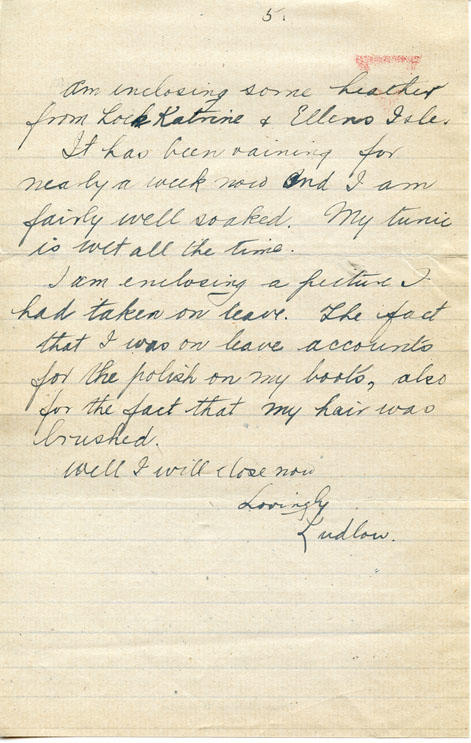 5.
Am enclosing some heather
from Loch Katrine & Ellens Isle.
It has been raining for
nearly a week now and I am
fairly well soaked. My tunic
is wet all the time.
I am enclosing a picture I
had taken on leave. The fact
that I was on leave accounts
for the polish on my boots, also
for the fact that my hair was
brushed.
Well I will close now
Lovingly
Ludlow.